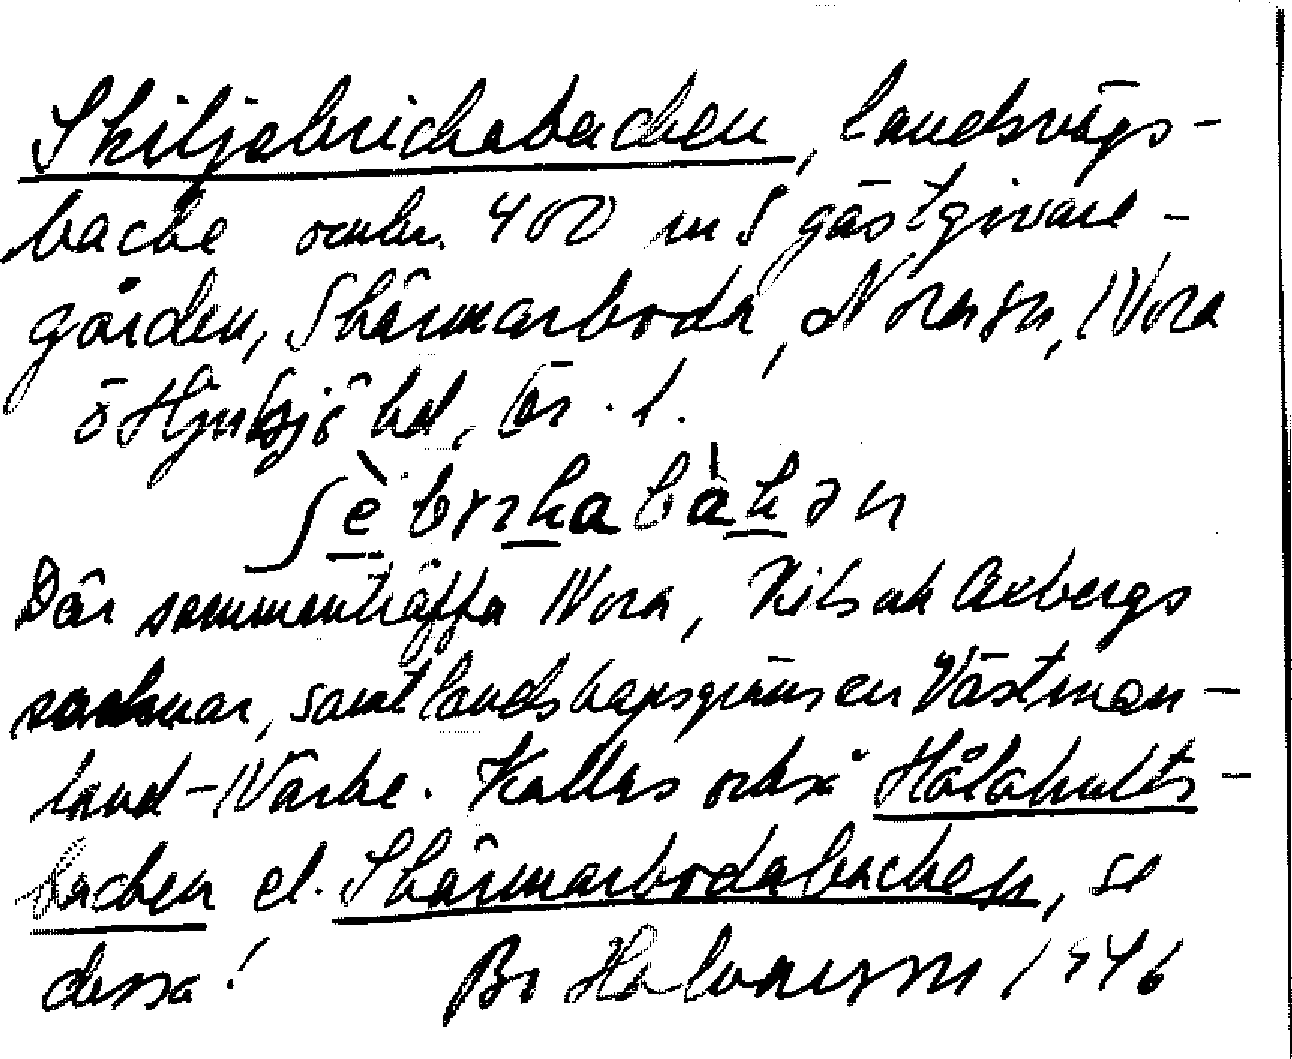 Skiljabrickabacken, landsvägs-
backe omkr. 400 m S gästgivare-
gården, Skärmarboda, Nora sn, Nora
o Hjulsjö bd, Ör. l.
Där sammanträffa Nora, Kils och Axbergs
socknar, samt landskapsgränsen Västman-
land-Närke. Kallas också Hålahults-
backen el. Skärmarbodabacken, se
dessa! Bo 1946